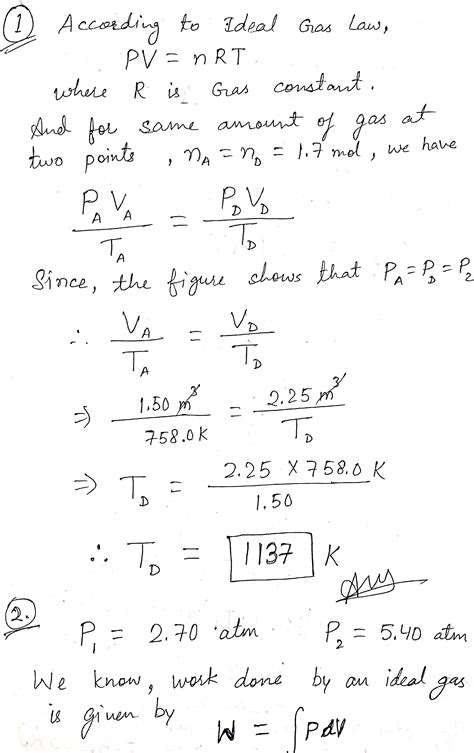 ① According to Ideal Gas Law,
PV = nRT.
where R is Gas constant.
And for same amount of gas at
two points, n_A = n_D = 1.7 mol, we have
P_A V_A / T_A = P_D V_D / T_D
Since, the figure shows that P_A = P_D = P_2
∴ V_A / T_A = V_D / T_D
⇒ 1.50 m³ / 758.0 K = 2.25 m³ / T_D
⇒ T_D = 2.25 × 758.0 K / 1.50
∴ T_D = 1137 K
Ans
②.
P_1 = 2.70 atm P_2 = 5.40 atm
We know, work done by an ideal gas
is given by
W = ∫PdV